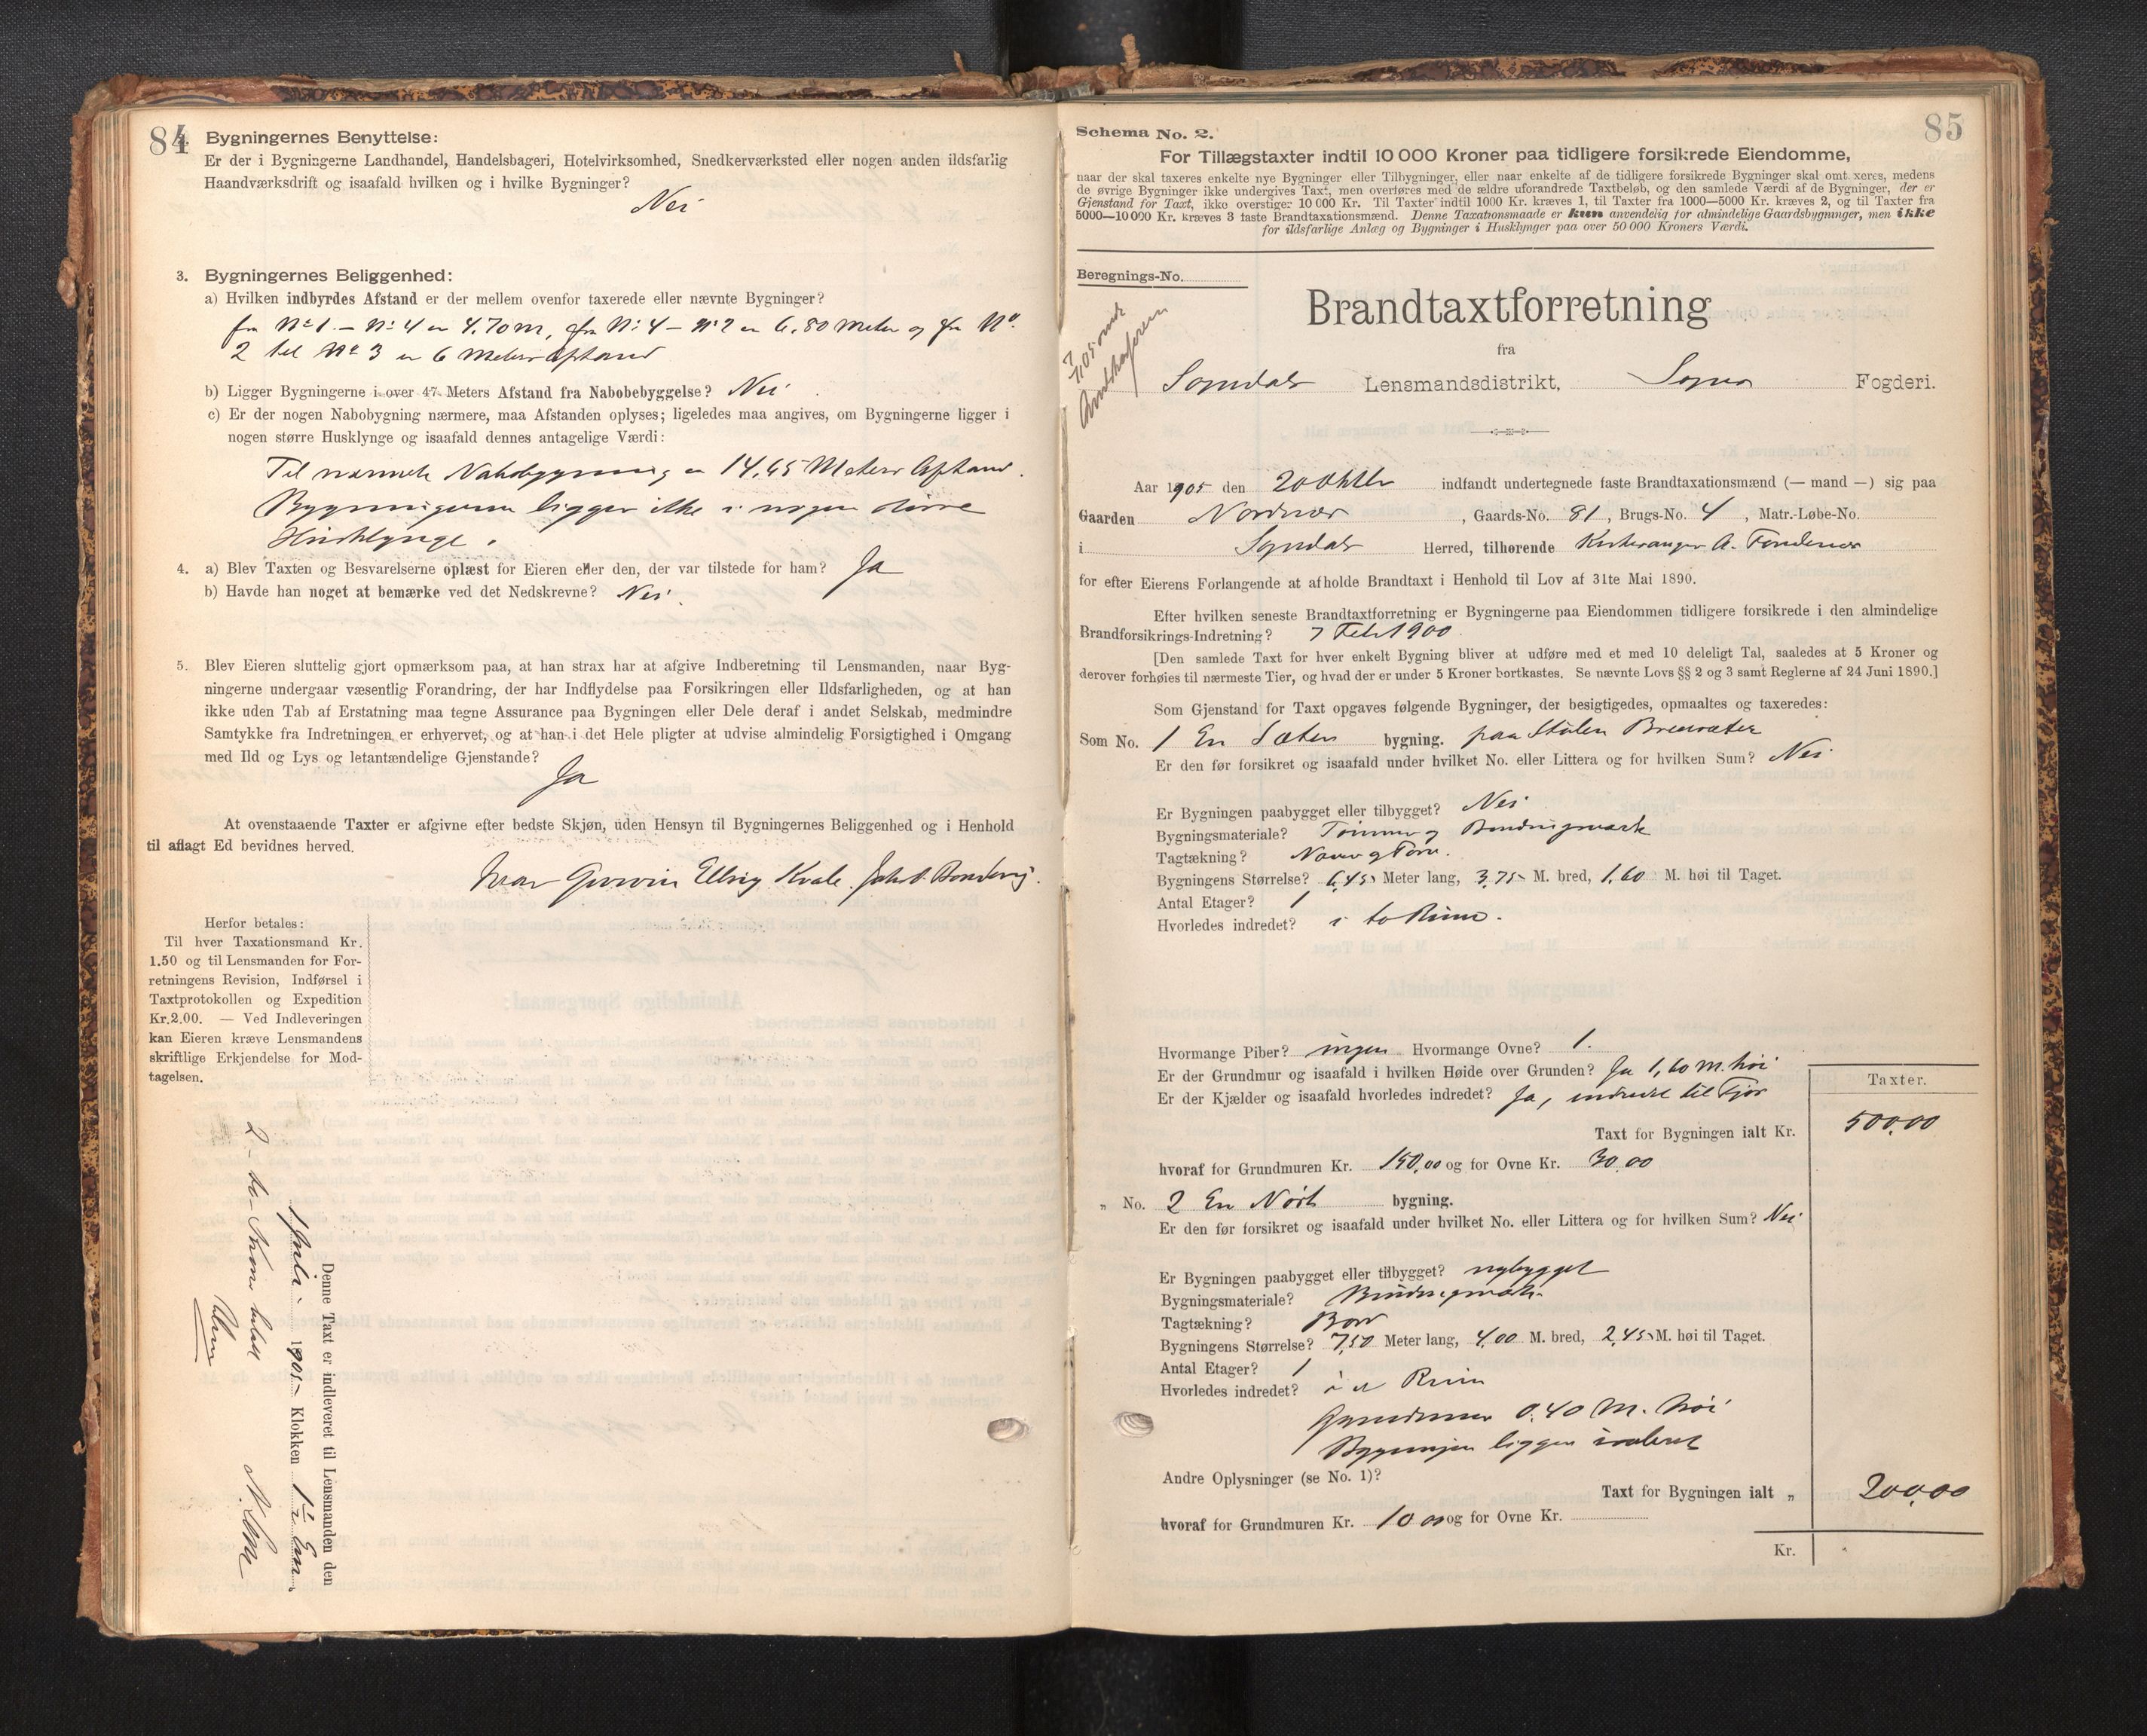 84
Bygningernes Benyttelse:
Er der i Bygningerne Landhandel, Handelsbageri, Hotelvirksomhed, Snedkerværksted eller nogen anden ildsfarlig
Haandværksdrift og isaafald hvilken og i hvilke Bygninger?
Nei
3. Bygningernes Beliggenhed:
a) Hvilken indbyrdes Afstand er der mellem ovenfor taxerede eller nævnte Bygninger?
fra No 1 – No 4 er 4.70 m, fra No 4 – No 2 er 6,80 Meter og fra No
2 til No 3 er 6 Meters Afstand
b) Ligger Bygningerne i over 47 Meters Afstand fra Nabobebyggelse? Nei
c) Er der nogen Nabobygning nærmere, maa Afstanden oplyses; ligeledes maa angives, om Bygningerne ligger i
nogen større Husklynge og isaafald dennes antagelige Værdi:
Til nærmeste Nabobygning er 14,65 Meters Afstand.
Bygningerne ligger ikke i nogen større
Husklynge.
4. a) Blev Taxten og Besvarelserne oplæst for Eieren eller den, der var tilstede for ham? Ja
b) Havde han noget at bemærke ved det Nedskrevne? Nei.
5. Blev Eieren sluttelig gjort opmærksom paa, at han strax har at afgive Indberetning til Lensmanden, naar Byg-
ningerne undergaar væsentlig Forandring, der har Indflydelse paa Forsikringen eller Ildsfarligheden, og at han
ikke uden Tab af Erstatning maa tegne Assurance paa Bygningen eller Dele deraf i andet Selskab, medmindre
Samtykke fra Indretningen er erhvervet, og at han i det Hele pligter at udvise almindelig Forsigtighed i Omgang
med Ild og Lys og letantændelige Gjenstande?
Ja
At ovenstaaende Taxter er afgivne efter bedste Skjøn, uden Hensyn til Bygningernes Beliggenhed og i Henhold
til aflagt Ed bevidnes herved.
Kvale
Herfor betales:
Til hver Taxationsmand Kr.
1.50 og til Lensmanden for For-
retningens Revision, Indførsel i
Taxtprotokollen og Expedition
Kr. 2.00. — Ved Indleveringen
kan Eieren kræve Lensmandens
skriftlige Erkjendelse for Mod-
tagelsen.
Denne Taxt er indleveret til Lensmanden den
1 Juli 1905 Klokken 1½ Em.
2 – to Kroner betalt
85
Schema No. 2.
For Tillægstaxter indtil 10 000 Kroner paa tidligere forsikrede Eiendomme,
naar der skal taxeres enkelte nye Bygninger eller Tilbygninger, eller naar enkelte af de tidligere forsikrede Bygninger skal omtaxeres, medens
de øvrige Bygninger ikke undergives Taxt, men overføres med de ældre uforandrede Taxtbeløb, og den samlede Værdi af de Bygninger, der er
Gjenstand for Taxt, ikke overstiger 10 000 Kr. Til Taxter indtil 1000 Kr. kræves 1, til Taxter fra 1000—5000 Kr. kræves 2, og til Taxter fra
5000—10 000 Kr. kræves 3 faste Brandtaxationsmænd. Denne Taxationsmaade er kun anvendelig for almindelige Gaardsbygninger, men ikke
for ildsfarlige Anlæg og Bygninger i Husklynger paa over 50 000 Kroners Værdi.
Beregnings-No.
Brandtaxtforretning
fra
Sogndals Lensmandsdistrikt, Sogns Fogderi.
Aar 1905 den 20 Oktbr indfandt undertegnede faste Brandtaxationsmænd (— mand —) sig paa
Gaarden Nordnæs, Gaards-No. 81, Brugs-No. 4, Matr.-Løbe-No.
i Sogndals Herred, tilhørende Kirkesanger A.
for efter Eierens Forlangende at afholde Brandtaxt i Henhold til Lov af 31te Mai 1890.
Efter hvilken seneste Brandtaxtforretning er Bygningerne paa Eiendommen tidligere forsikrede i den almindelige
Brandforsikrings-Indretning? 7 Febr 1900.
[Den samlede Taxt for hver enkelt Bygning bliver at udføre med et med 10 deleligt Tal, saaledes at 5 Kroner og
derover forhøies til nærmeste Tier, og hvad der er under 5 Kroner bortkastes. Se nævnte Lovs §§ 2 og 3 samt Reglerne af 24 Juni 1890.]
Som Gjenstand for Taxt opgaves følgende Bygninger, der besigtigedes, opmaaltes og taxeredes:
Som No. 1 En Sæter bygning. paa Stølen
Er den før forsikret og isaafald under hvilket No. eller Littera og for hvilken Sum? Nei
Er Bygningen paabygget eller tilbygget? Nei
Bygningsmateriale? Tømmer og Bindingsværk
Tagtækning? Næver og Torv.
Bygningens Størrelse? 6,45 Meter lang, 3,75 M. bred, 1,60 M. høi til Taget.
Antal Etager? 1
Hvorledes indredet? i to Rum.
Hvormange Piber? ingen Hvormange Ovne? 1.
Er der Grundmur og isaafald i hvilken Høide over Grunden? Ja 1,60 M. høi
Er der Kjælder og isaafald hvorledes indredet? Ja, indredet til Fjøs
Taxter.
Taxt for Bygningen ialt Kr. 500,00
hvoraf for Grundmuren Kr. 150,00 og for Ovne Kr. 30,00
„ No. 2 En Nøst bygning.
Er den før forsikret og isaafald under hvilket No. eller Littera og for hvilken Sum? Nei
Er Bygningen paabygget eller tilbygget? nybygget
Bygningsmateriale? Bindingsværk
Tagtækning? Bord
Bygningens Størrelse? 7,50 Meter lang, 4,00 M. bred, 2,45 M. høi til Taget.
Antal Etager? 1
Hvorledes indredet? i et Rum
Grundmur 0.40 M. høi
Bygningen ligger isoleret
Andre Oplysninger (se No. 1)?
Taxt for Bygningen ialt „ 200,00
hvoraf for Grundmuren Kr. 10 00 og for Ovne Kr.
Kr.